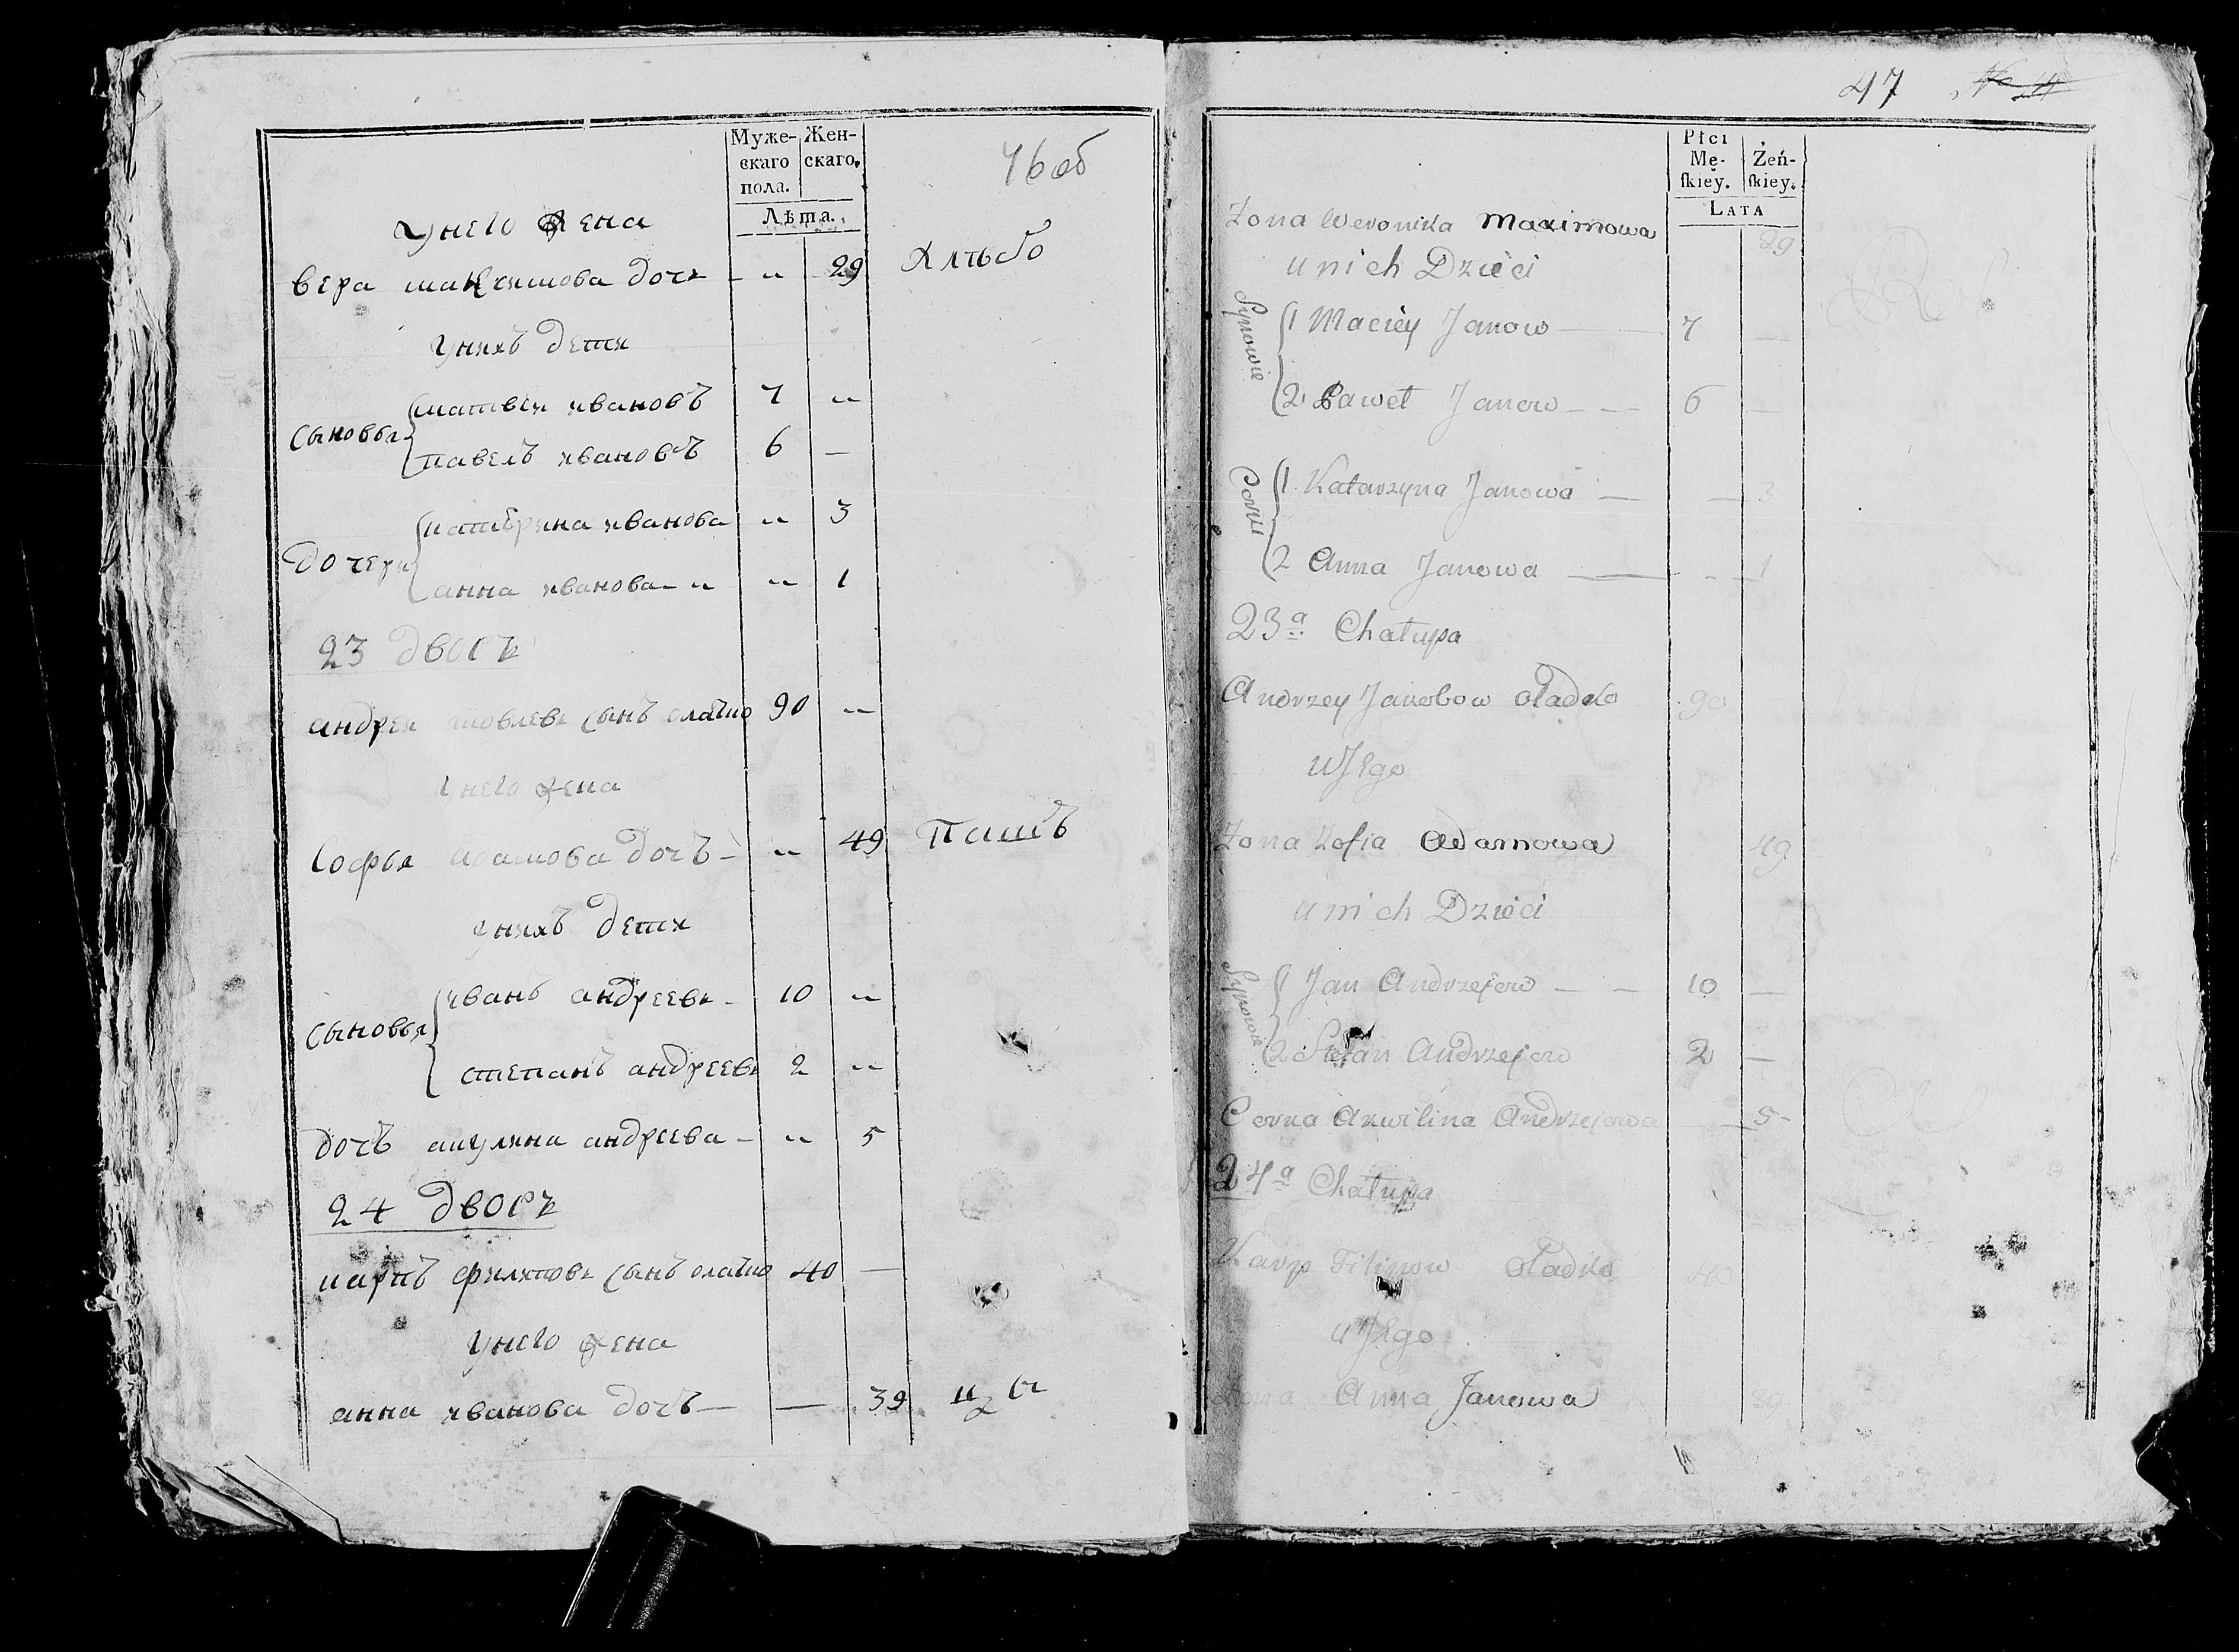 46 об
Муже-
скаго
пола.
Жен-
скаго.
Лѣта.
У него жена
вера максимова дочь - " 29
У нихъ дети
Сыновья
матвей ивановъ 7 "
павелъ ивановъ 6 —
Дочери
катерина иванова " 3
анна иванова " 1
23 дворъ
андрей яковлевъ сынъ оладко 90 —
У него жена
Софья адамова дочъ - " 49
У нихъ дети
Сыновья
иванъ андреевъ - 10 "
степанъ андреевъ 2 "
дочъ акулина андреева - " 5
24 дворъ
карпъ филиповъ сынъ оладко 40 —
У него жена
анна иванова дочъ — — 39
47
Płci
Mę-
skiey.
Żeń-
skiey.
Lata
Zona Weronika Maximowa 29
u nich Dzieci
Synowie
1 Maciey Janow — 7 —
2 Paweł Janow — 6 —
Corki
1. Katarzyna Janowa — — 3
2 Anna Janowa — — 1
23a Chałupa
Andrzey Jakobow oładko 90
u Jego
Zona Zofia Adamowa 49
u nich Dzieci
Synowie
1 Jan Andrzejow — — 10 —
2 Stefan Andrzejow 2 —
Corka Akwilina Andrzejowa — 5 -
24a Chałupa
Karp Filipow oładko 40
u Jego
Zona Anna Janowa 39